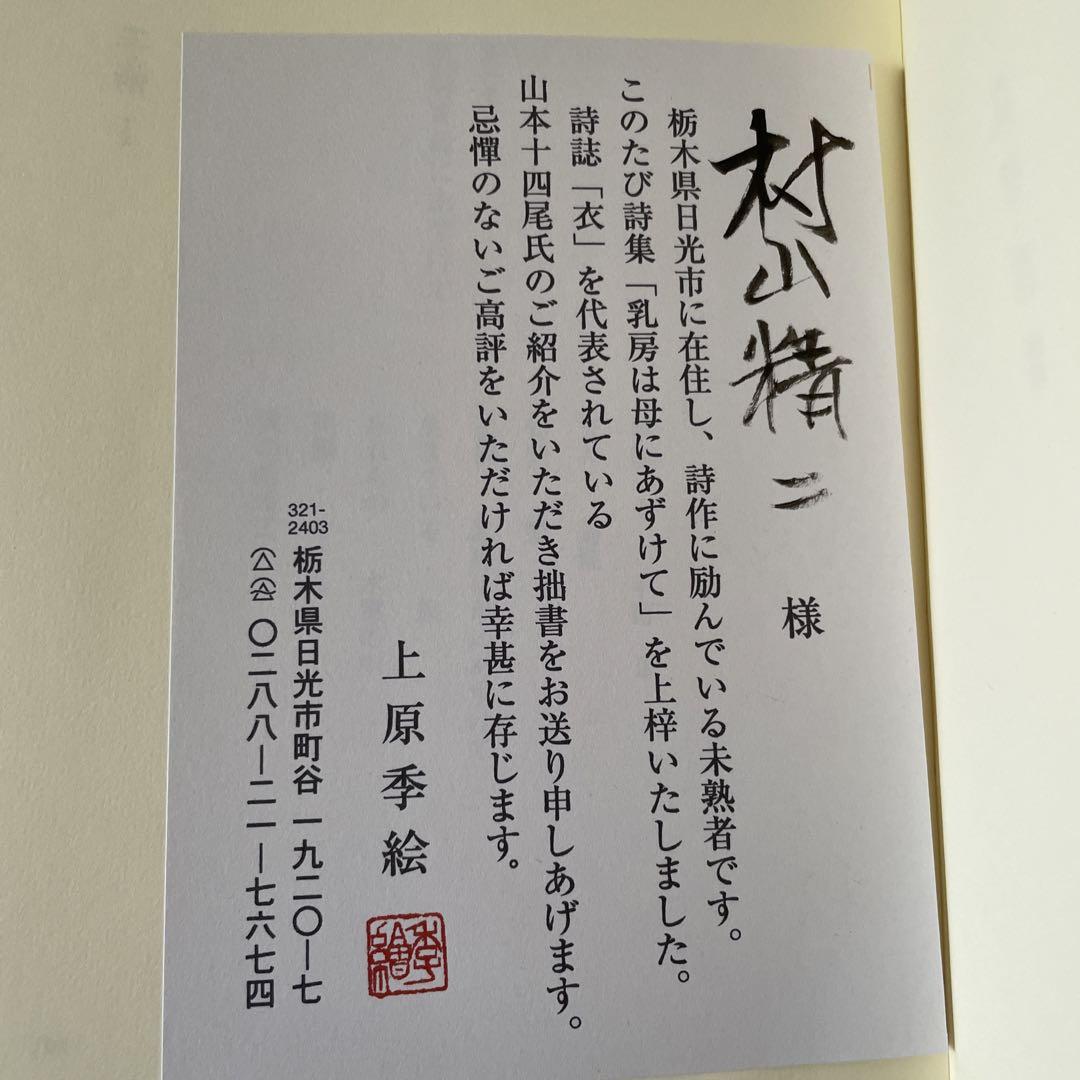 村山精二 様
栃木県日光市に在住し、詩作に励んでいる未熟者です。
このたび詩集「乳房は母にあずけて」を上梓いたしました。
詩誌「衣」を代表されている
山本十四尾氏のご紹介をいただき拙書をお送り申しあげます。
忌憚のないご高評をいただければ幸甚に存じます。
上原季絵
季繪
321-2403 栃木県日光市町谷一九二〇―七
〇二八八―二一―七六七四